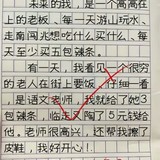 未来的我，是一个高高在
上的老板，每一天游山玩水、
走南闯北想吃什么买什么、每
天至少买五包辣条。
有一天，我看见一个很穷
的老人在街上要饭，仔细一看
是语文老师，我就给了她3
包辣条，临走时，陶了5元钱给
他。老师很高兴，还帮我擦了
皮鞋，我好开心！